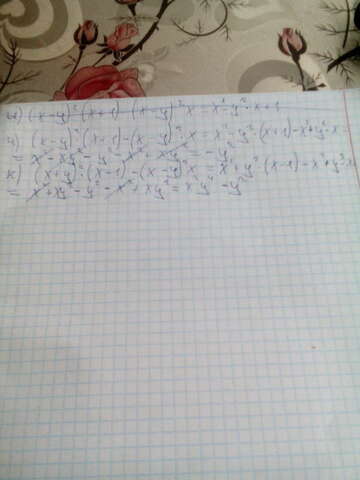 (x-y)²(x+1)-(x-y)²x = x²-y²·x+1
ч) (x-y)²·(x-1)-(x-y)²·x = x²-y²·(x+1)-x²+y²·x =
= x²-xy²-y²-x²+xy² = -y²
к) (x+y)²·(x-1)-(x-y)²x = x²+y²·(x-1)-x²+y²·x
= x²+xy²-y²-x²+xy² = x²y⁴-y²